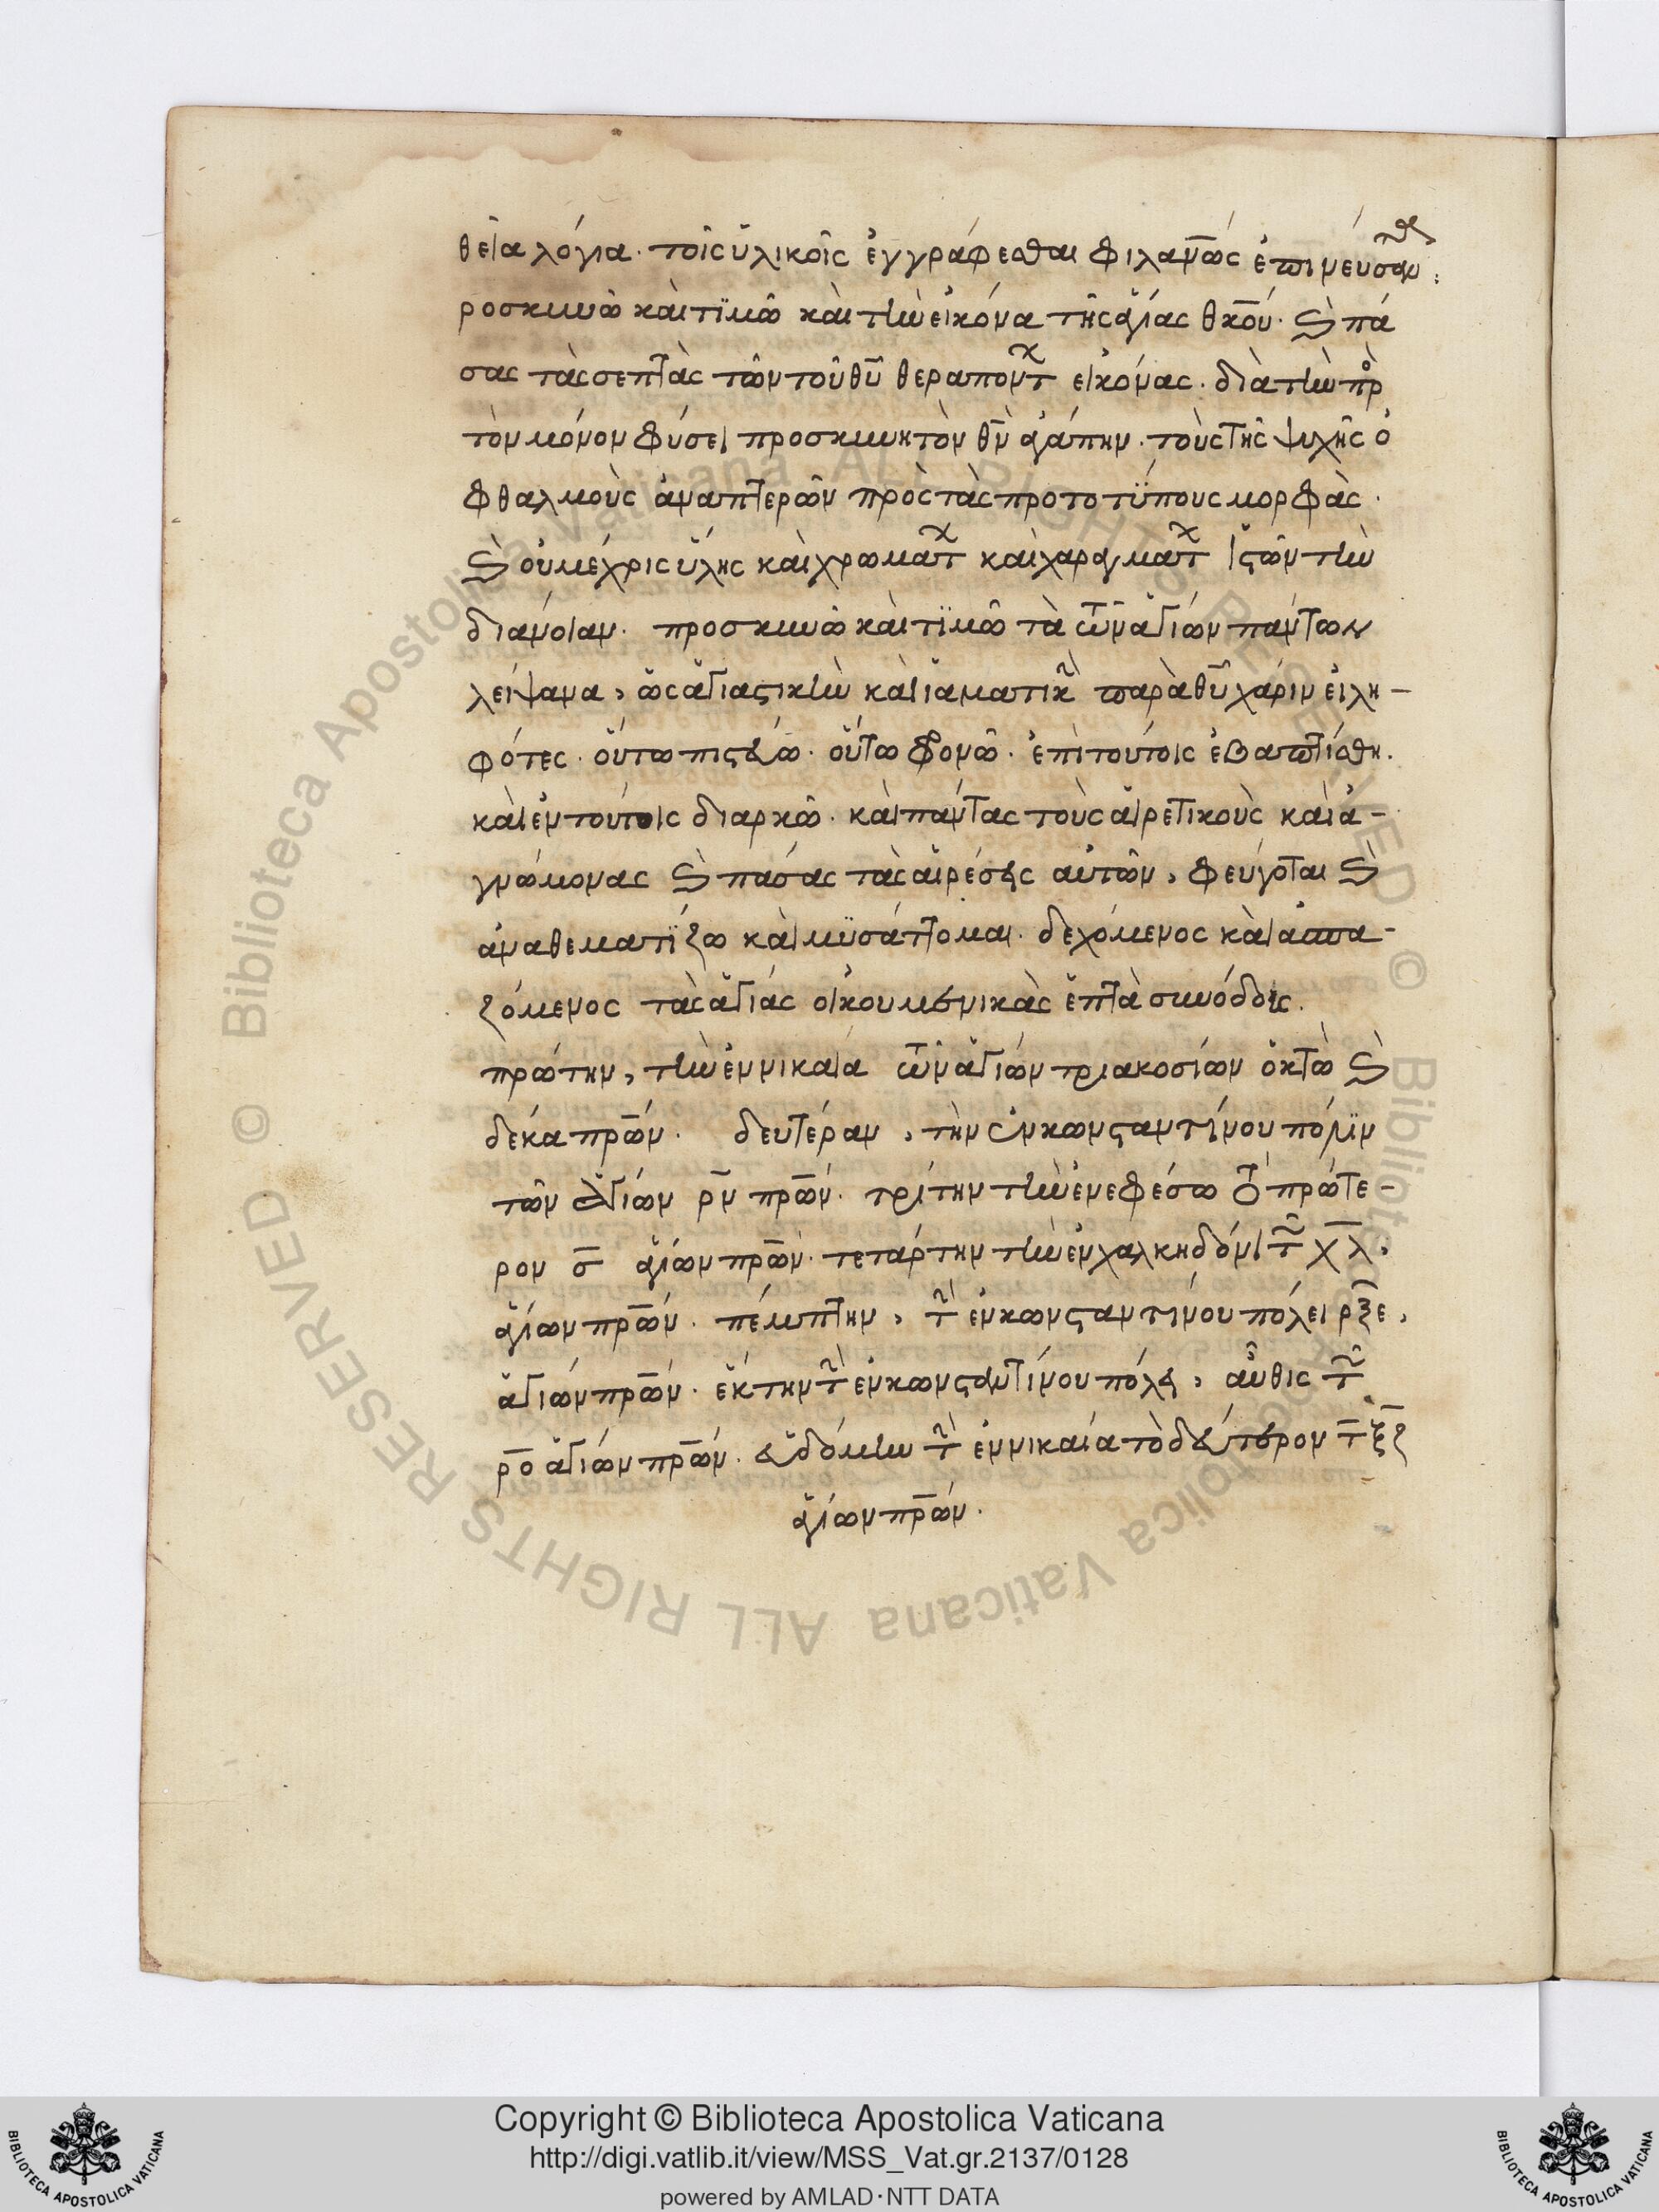 θεῖα λόγια· τοῖς ὑλικοῖς ἐγγράφεσθαι φιλαν̅ως ἐπινεύσαν
ροσκυνῶ καὶ τϊμῶ καὶ τὴν εἰκόνα τῆς ἁγίας θκ̅ου· καὶ πά
σας τὰς σεπτὰς τῶν τοῦ θυ̅ θεραπόντ εἰκόνας· διὰ τὴν πρ
τὸν μόνον φύσει προσκυνητὸν θν̅ ἀγάπην· τοὺς τῆς ψυχῆς ὀ
φθαλμοὺς ἀναπτερῶν πρὸς τὰς προτοτϋπους μορφὰς·
καὶ οὐ μέχρις ὕλης καὶ χρωματ καὶ χαραγματ ἱστῶν τὴν
διάνοιαν· προσκυνῶ καὶ τϊμῶ τὰ τῶν ἁγίων πάντων
λείψανα, ὡς ἁγιαστικὴν καὶ ἰαματικὴν παρὰ θυ̅ χάριν εἰλη-
φότες· οὕτω πιστεύω· οὕτω φρονῶ· ἐπὶ τούτοις ἐβαπτίσθην·
καὶ ἐν τούτοις διαρκῶ· καὶ πάντας τοὺς αἱρετικοὺς καὶ ἀ-
γνώμονας καὶ πάσας τὰς αἱρέσεις αὐτῶν, φεύγοται καὶ
ἀναθεματϊζω καὶ μϋσάττομαι· δεχόμενος καὶ ἀσπα-
ζόμενος τὰς ἁγίας οἰκουμενικὰς ἑπτὰ συνόδους.
πρώτην, τὴν ἐν νικαία τῶν ἁγίων τριακοσίων ὀκτὼ καὶ
δέκα πρ̅ων· δευτέραν, τὴν ἐν κωνσταντίνου πόλϊν
τῶν ἁγίων ρν̅ πρ̅ων· τρίτην τὴν ἐν ἐφέσω τὸ πρώτε-
ρον σ̅ ἁγίων πρ̅ων· τετάρτην τὴν ἐν χαλκηδόνι τῶν χ̅λ̅,
ἁγίων πρ̅ων· πέμπτην, τὴν ἐν κωνσταντίνου πόλει ρξ̅ε,
ἁγίων πρ̅ων· ἕκτην τὴν ἐν κωνσταντίνου πόλει, αὖθις τῶν
ρ̅ο̅ ἁγίων πρ̅ων· ἑβδόμην τὴν ἐν νικαία τὸ δεύτερον τ̅ξ̅ζ
ἁγίων πρ̅ων·
Copyright © Biblioteca Apostolica Vaticana
http://digi.vatlib.it/view/MSS_Vat.gr.2137/0128
powered by AMLAD·NTT DATA